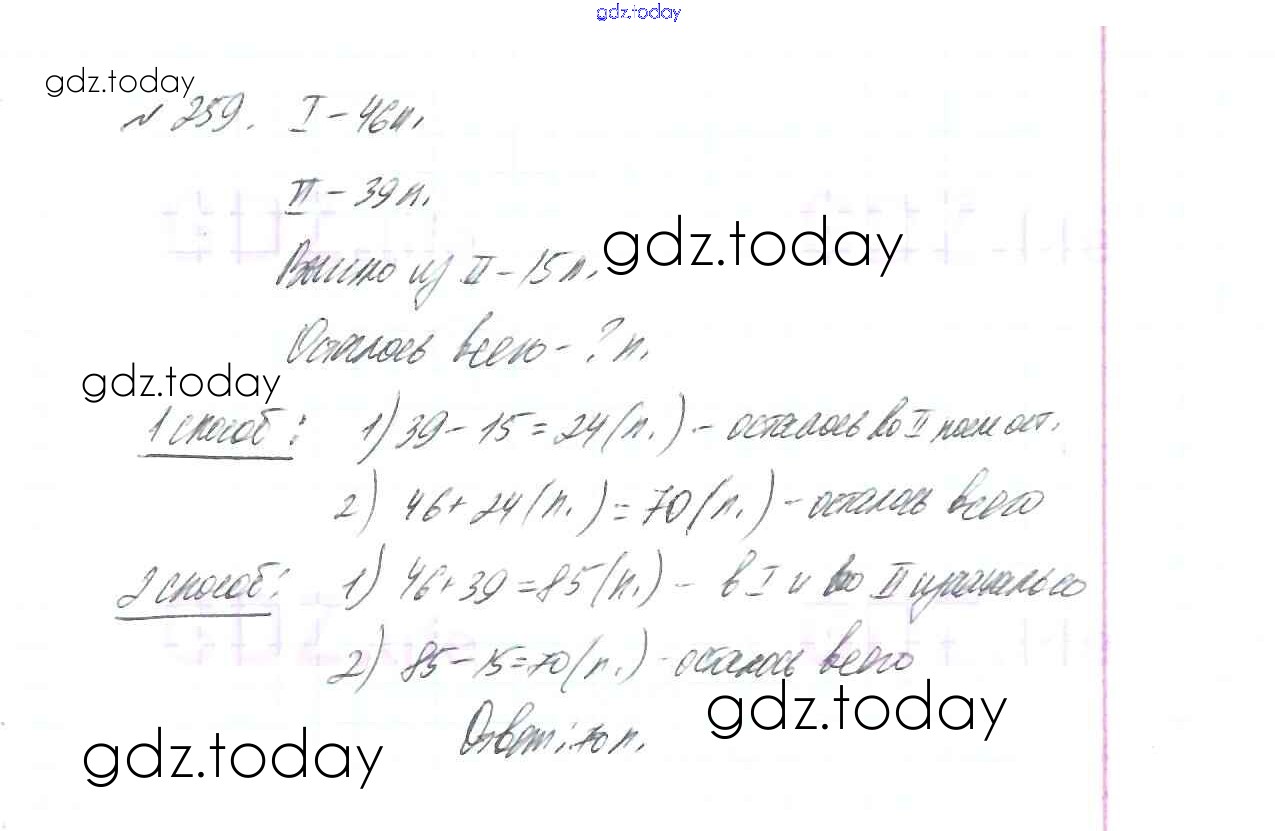 gdz.today
gdz.today
№ 259. I – 46 п.
II – 39 п.
Вышло из II – 15 п.
gdz.today
Осталось всего – ? п.
gdz.today
1 способ: 1) 39 – 15 = 24 (п.) – осталось во II после ост.
2) 46 + 24 (п.) = 70 (п.) – осталось всего
2 способ: 1) 46 + 39 = 85 (п.) – в I и во II изначально
2) 85 – 15 = 70 (п.) – осталось всего
gdz.today
Ответ: 70 п.
gdz.today